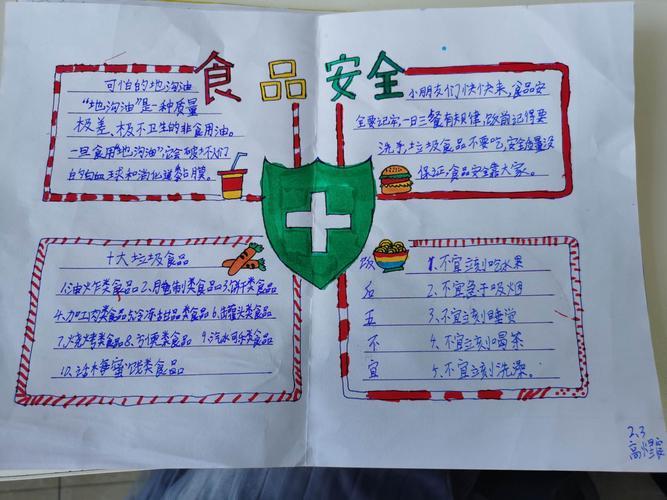 食品安全
可怕的地沟油
“地沟油”是一种质量
极差、极不卫生的非食用油。
一旦食用“地沟油”,它会破坏人们
的白血球和消化道黏膜。
小朋友们快快来,食品安
全要记牢,一日三餐有规律,饭前记得要
洗手,垃圾食品不要吃,安全质量没
保证,食品安全靠大家。
十大垃圾食品
1.油炸类食品2.腌制类食品3.饼干类食品
4.加工肉类食品5.冷冻甜品类食品6.罐头类食品
7.烧烤类食品8.方便类食品9.汽水可乐类食品
10.话梅蜜饯类食品
饭后五不宜
1.不宜立刻吃水果
2.不宜急于吸烟
3.不宜立刻睡觉
4.不宜立刻喝茶
5.不宜立刻洗澡.
2.3
高